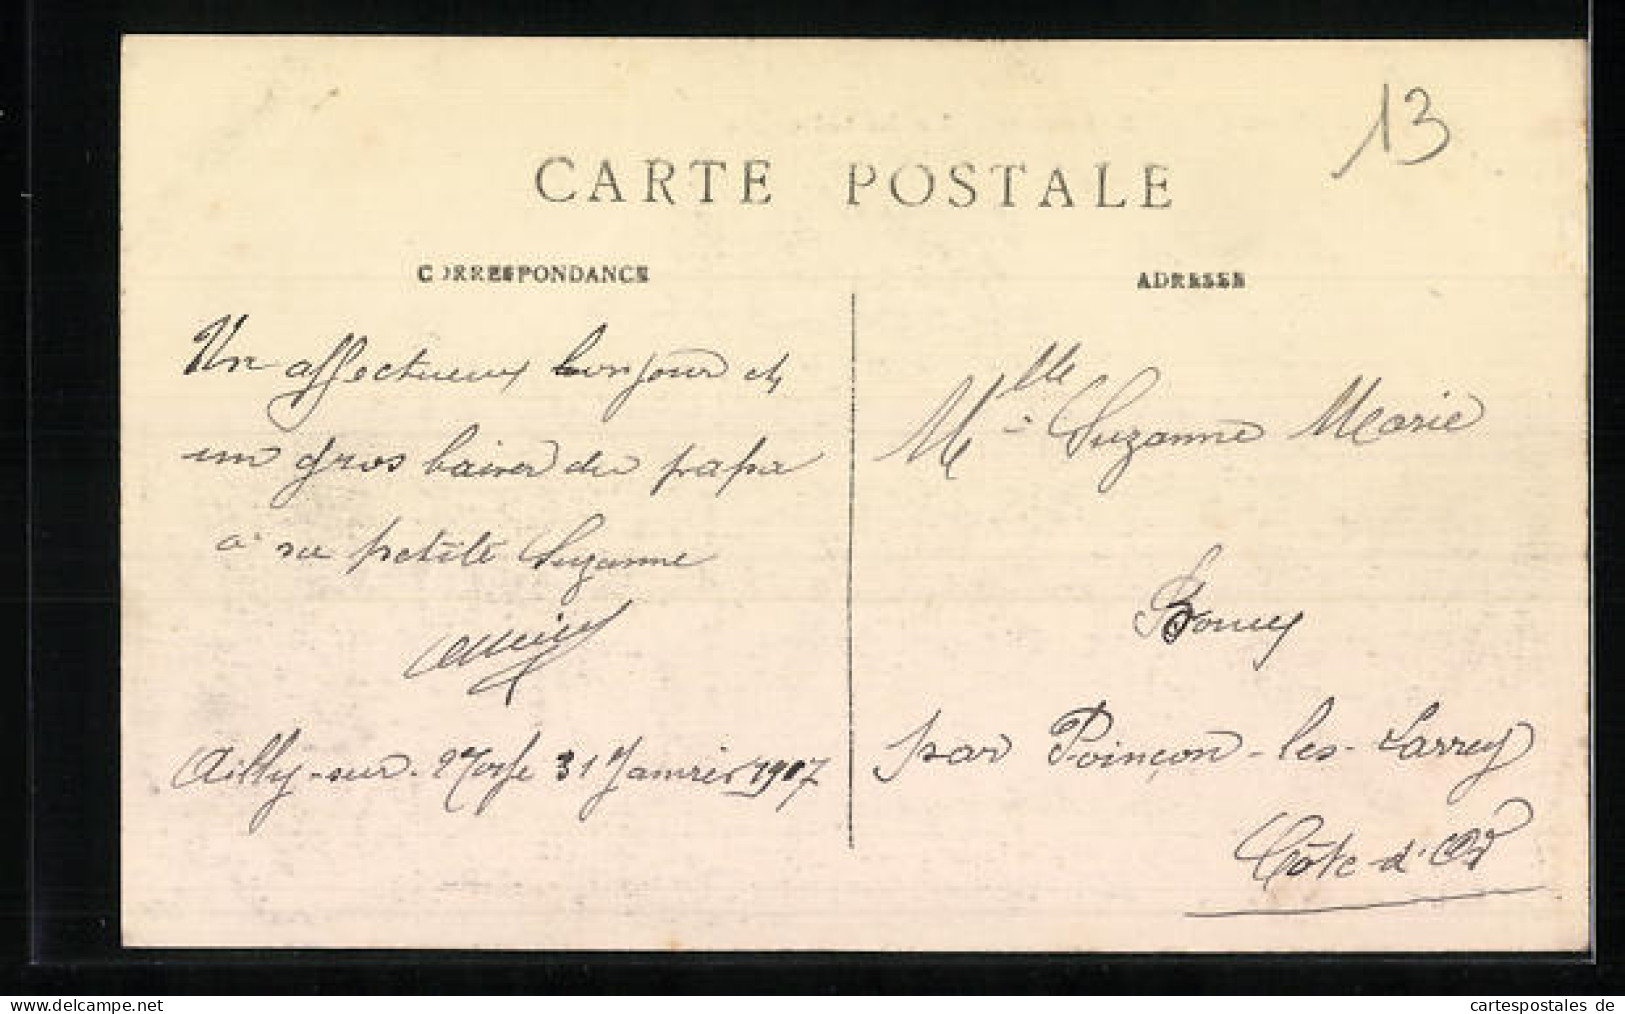 13
CARTE POSTALE
CORRESPONDANCE
ADRESSE
Un affectueux bonjour et
un gros baiser du papa
à sa petite Suzanne
Ailly-sur-Noye 31 Janvier 1907
Mlle Suzanne Marie
par Poinçon-les-Larrey
Côte-d'Or
www.oldthing.com
cartespostales de